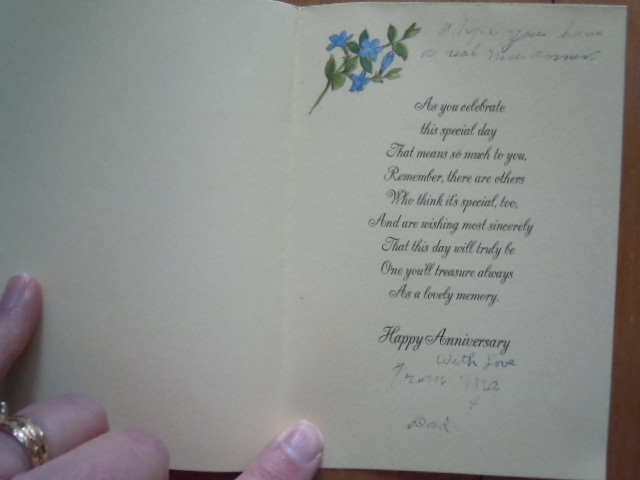 I hope you have
a real nice
As you celebrate
this special day
That means so much to you,
Remember, there are others
Who think it's special, too,
And are wishing most sincerely
That this day will truly be
One you'll treasure always
As a lovely memory.
Happy Anniversary
With Love
From Ma
+
Dad.